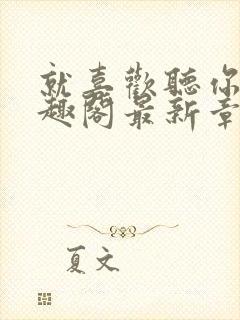 就喜歡聽你
趣閣最新章
夏文